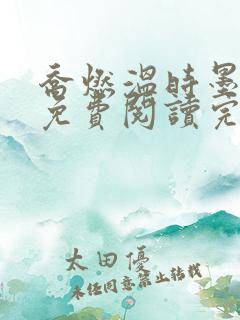 喬燃溫時墨
免費閱讀完
太田優
未經同意禁止轉載